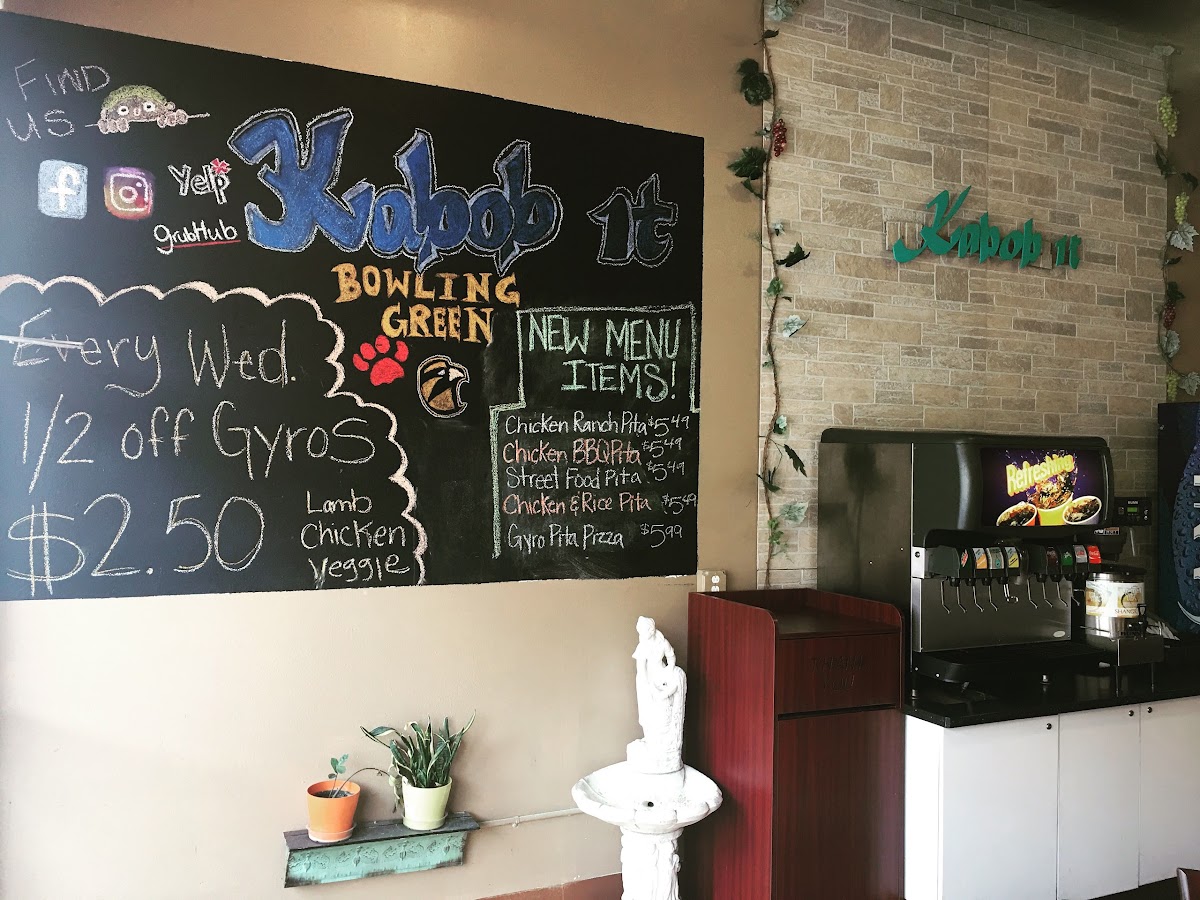 FIND
US
Yelp
grubHub
Kabob it
BOWLING
GREEN
Every Wed.
1/2 off Gyros
$2.50
Lamb
Chicken
Veggie
NEW MENU
ITEMS!
Chicken Ranch Pita $5.49
Chicken BBQ Pita $5.49
Street Food Pita $5.49
Chicken & Rice Pita $5.49
Gyro Pita Pizza $5.99
Kabob it
Refreshing